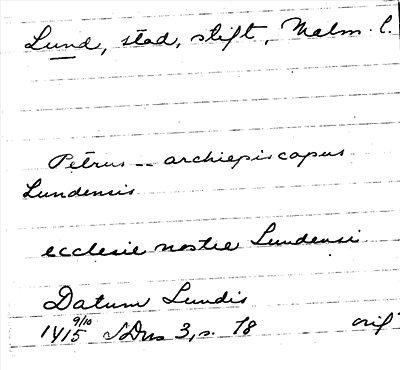 Lund, stad, stift, Malm. l.
Petrus -- archiepiscopus
Lundensis
ecclesie nostre Lundensi
Datum Lundis
1415 9/10 SDns 3, s. 78 orig